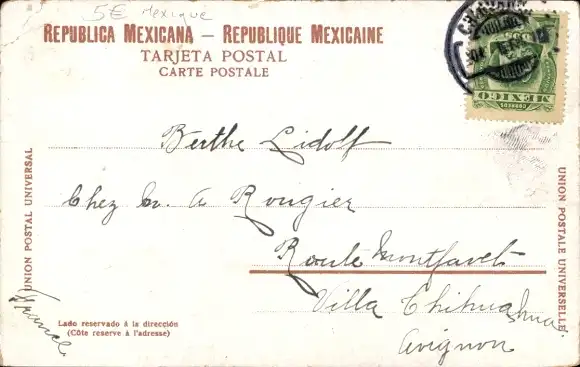 5€ Mexique
REPUBLICA MEXICANA — REPUBLIQUE MEXICAINE
TARJETA POSTAL
CARTE POSTALE
MEXICO
UNION POSTAL UNIVERSAL
UNION POSTALE UNIVERSELLE
Berthe Lidolf
Chez M. A Rougier
Route Montfavet
Villa Chihuahua
Avignon
France
Lado reservado á la dirección
(Côte reserve à l'adresse)